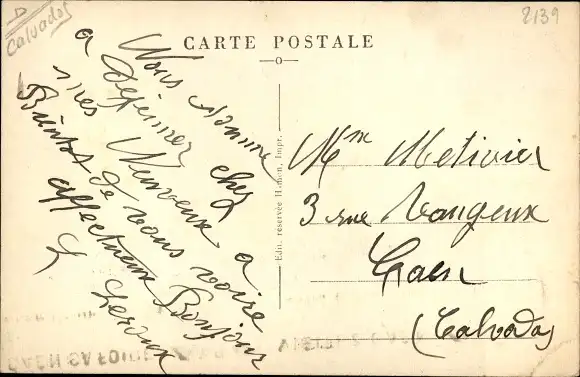 D
Calvados
2139
CARTE POSTALE
Nous somme
a Dejeinner chez
mes Neuveux a
Bientot de vous voire
affectueux Bonjour
L Leroux
Edit. réservée Hamon, Impr.
Mme Metivier
3 rue Vaugeux
Caen
(Calvados)
CAEN GARE